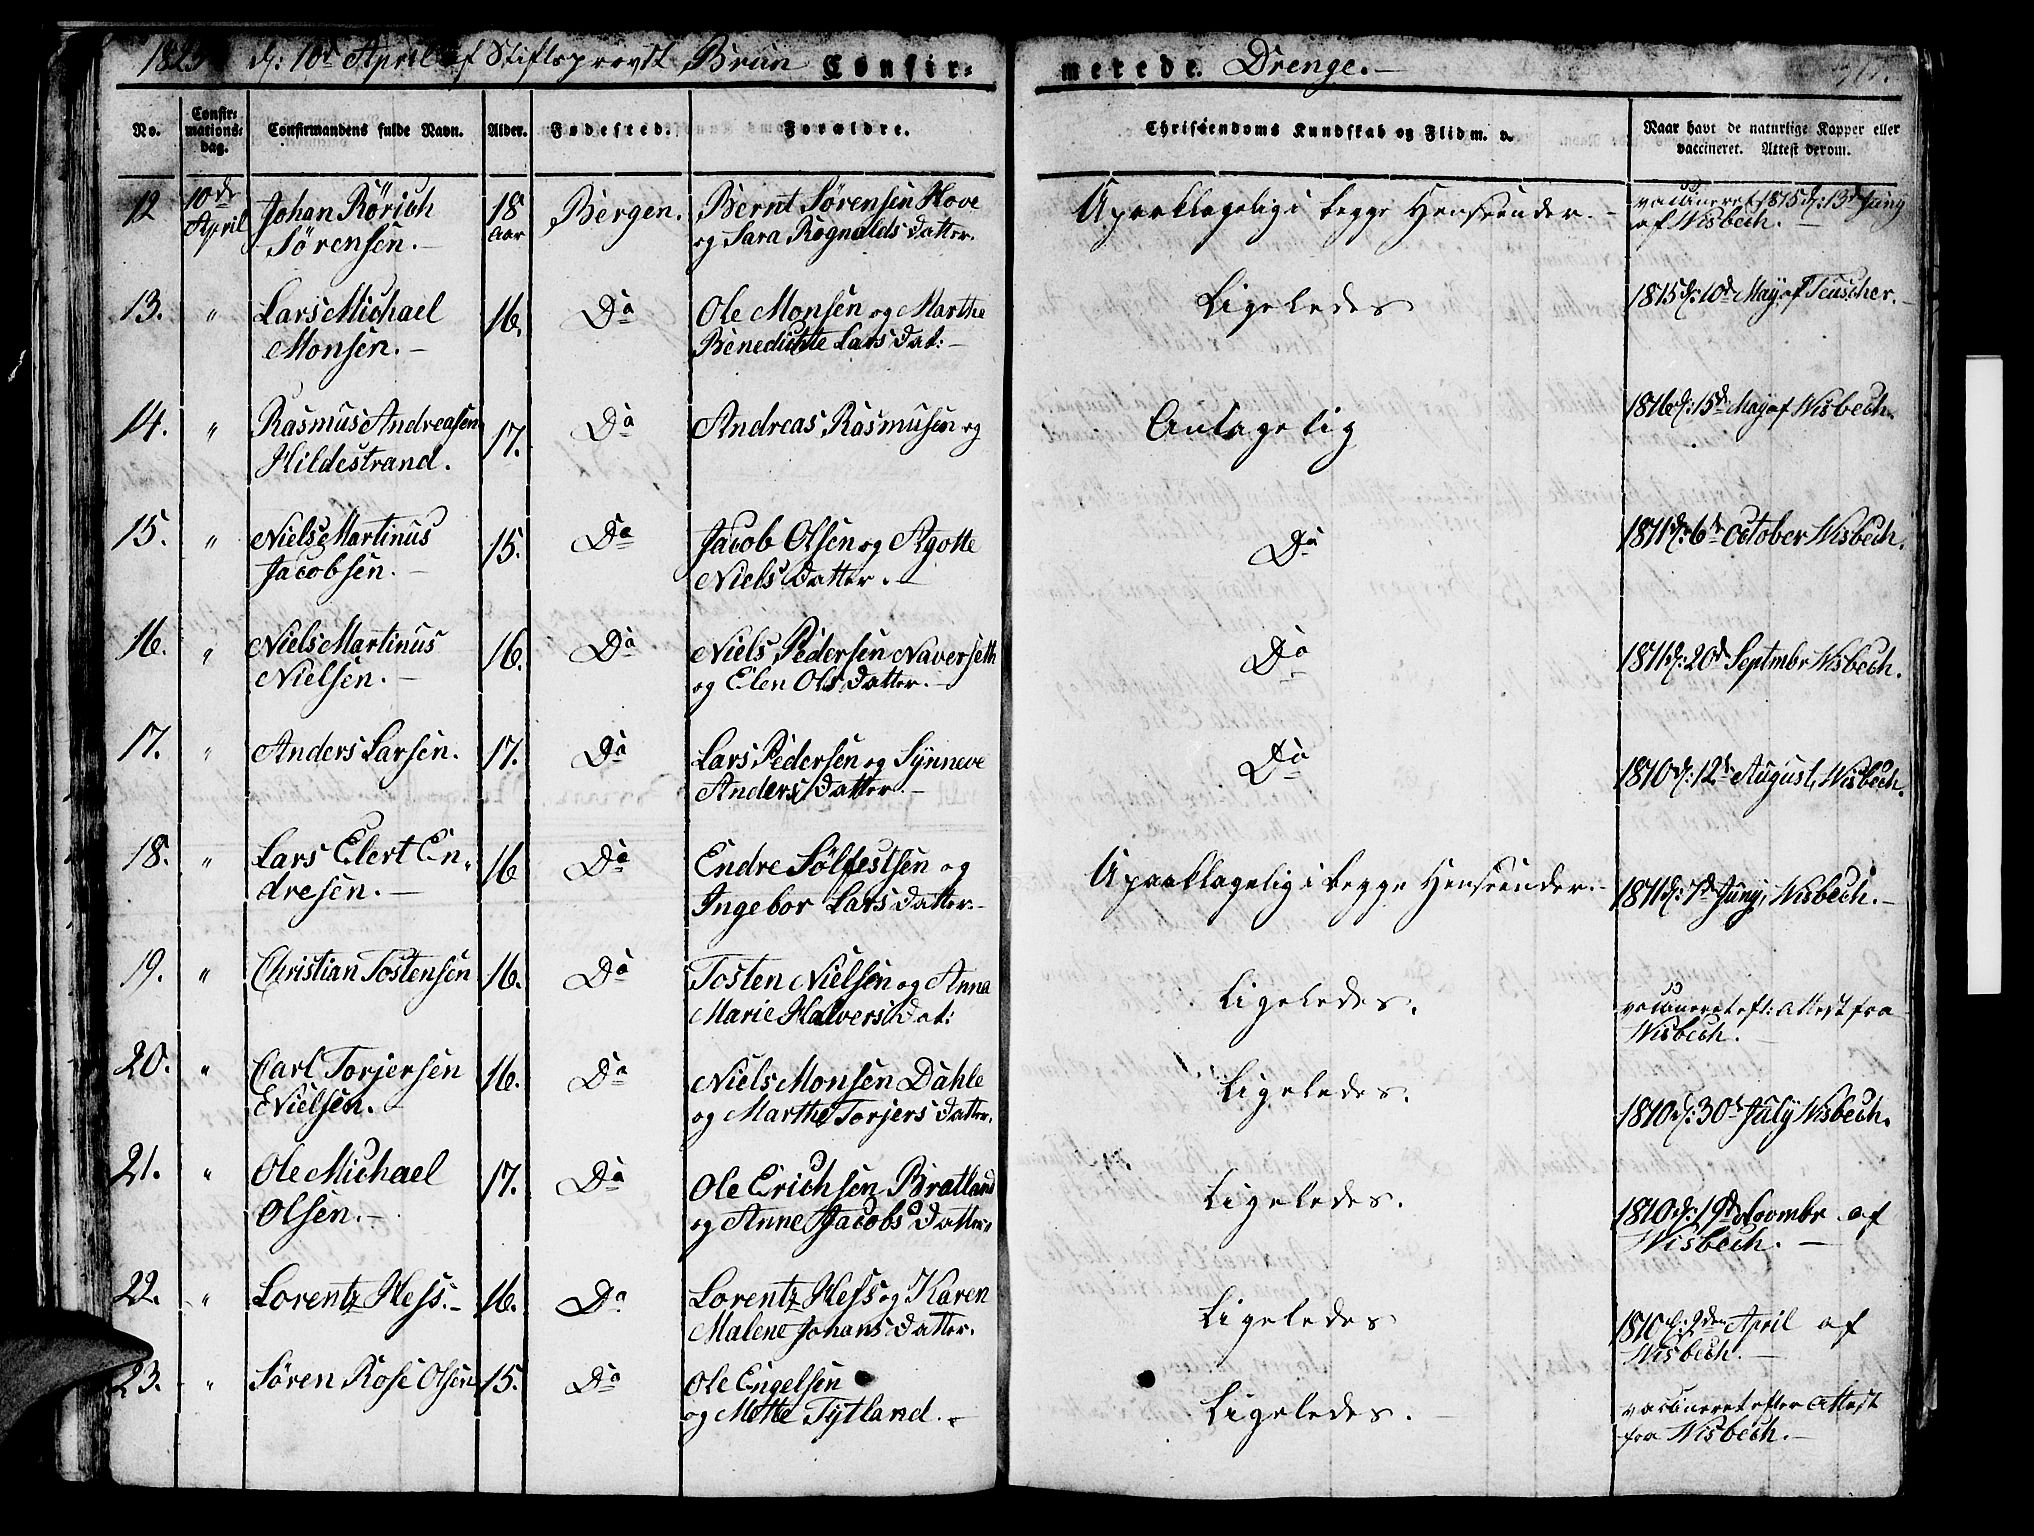 1825 d: 10de April af Stiftsprovst Brun Confir-
merede. Drenge.-
No.
Confir-
mations-
dag.
Confirmandens fulde Navn.
Alder.
Fødested.
Forældre.
Christendoms Kundskab og Flid m. v.
Naar havt de naturlige Kopper eller
vaccineret. Attest derom.
12 10de Johan Rörich 18 Bergen. Bernt Sørensen Hove Upaaklagelig i begge Henseender.- vaccineret 1815 d: 13de Juny
April Sörensen.- Aar og Sara Rognalds Datter. af Wisbech.-
13. " Lars Michael 16. Do Ole Monsen og Marthe Ligeledes 1815 d: 10de May af Teuscher.-
Monsen.- Benedichte Lars Dat:-
14. " Rasmus Andreasen 17. Do Andreas Rasmusen og Antagelig 1816 d: 15de May af Wisbech.
Hildestrand.
15. " Niels Martinus 15. Do Jacob Olsen og Agotte Do 1811 d: 6te October Wisbech.
Jacobsen.- Niels Datter.-
16. " Niels Martinus 16. Do Niels Pedersen Naverseth Do 1811 d: 20de Septmbr Wisbech.
Nielsen.- og Elen Ols Datter.-
17. " Anders Larsen. 17. Do Lars Pedersen og Synneve Do 1810 d: 12te August, Wisbech.
Anders Datter.-
18. " Lars Elert En- 16 Do Endre Sölfestsen og Upaaklagelig i begge Henseender.- 1811 d: 7de Juny, Wisbech.-
dresen.- Ingebor Lars Datter.-
19. " Christian Tostensen 16. Do Tosten Nielsen og Anna Ligeledes. vaccineret eft: Attest fra
Marie Halvers Dat: Wisbech.-
20. " Carl Torjersen 16. Do Niels Monsen Dahle Ligeledes. 1810 d: 30te July Wisbech.
Nielsen.- og Marthe Torjers Datter.
21. " Ole Michael 17. Do Ole Erichsen Bratland Ligeledes. 1810 d: 19de Novmbr af
Olsen.- og Anne Jacobs Datter. Wisbech.-
22. " Lorentz Hess.- 16. Do Lorentz Hess og Karen Ligeledes 1810 d: 2den April af
Malene Johans Datter. Wisbech.-
23. " Søren Rose Olsen 15. Do Ole Engelsen Ligeledes. vaccineret efter Attest
og Mette Tytland.- fra Wisbech.-